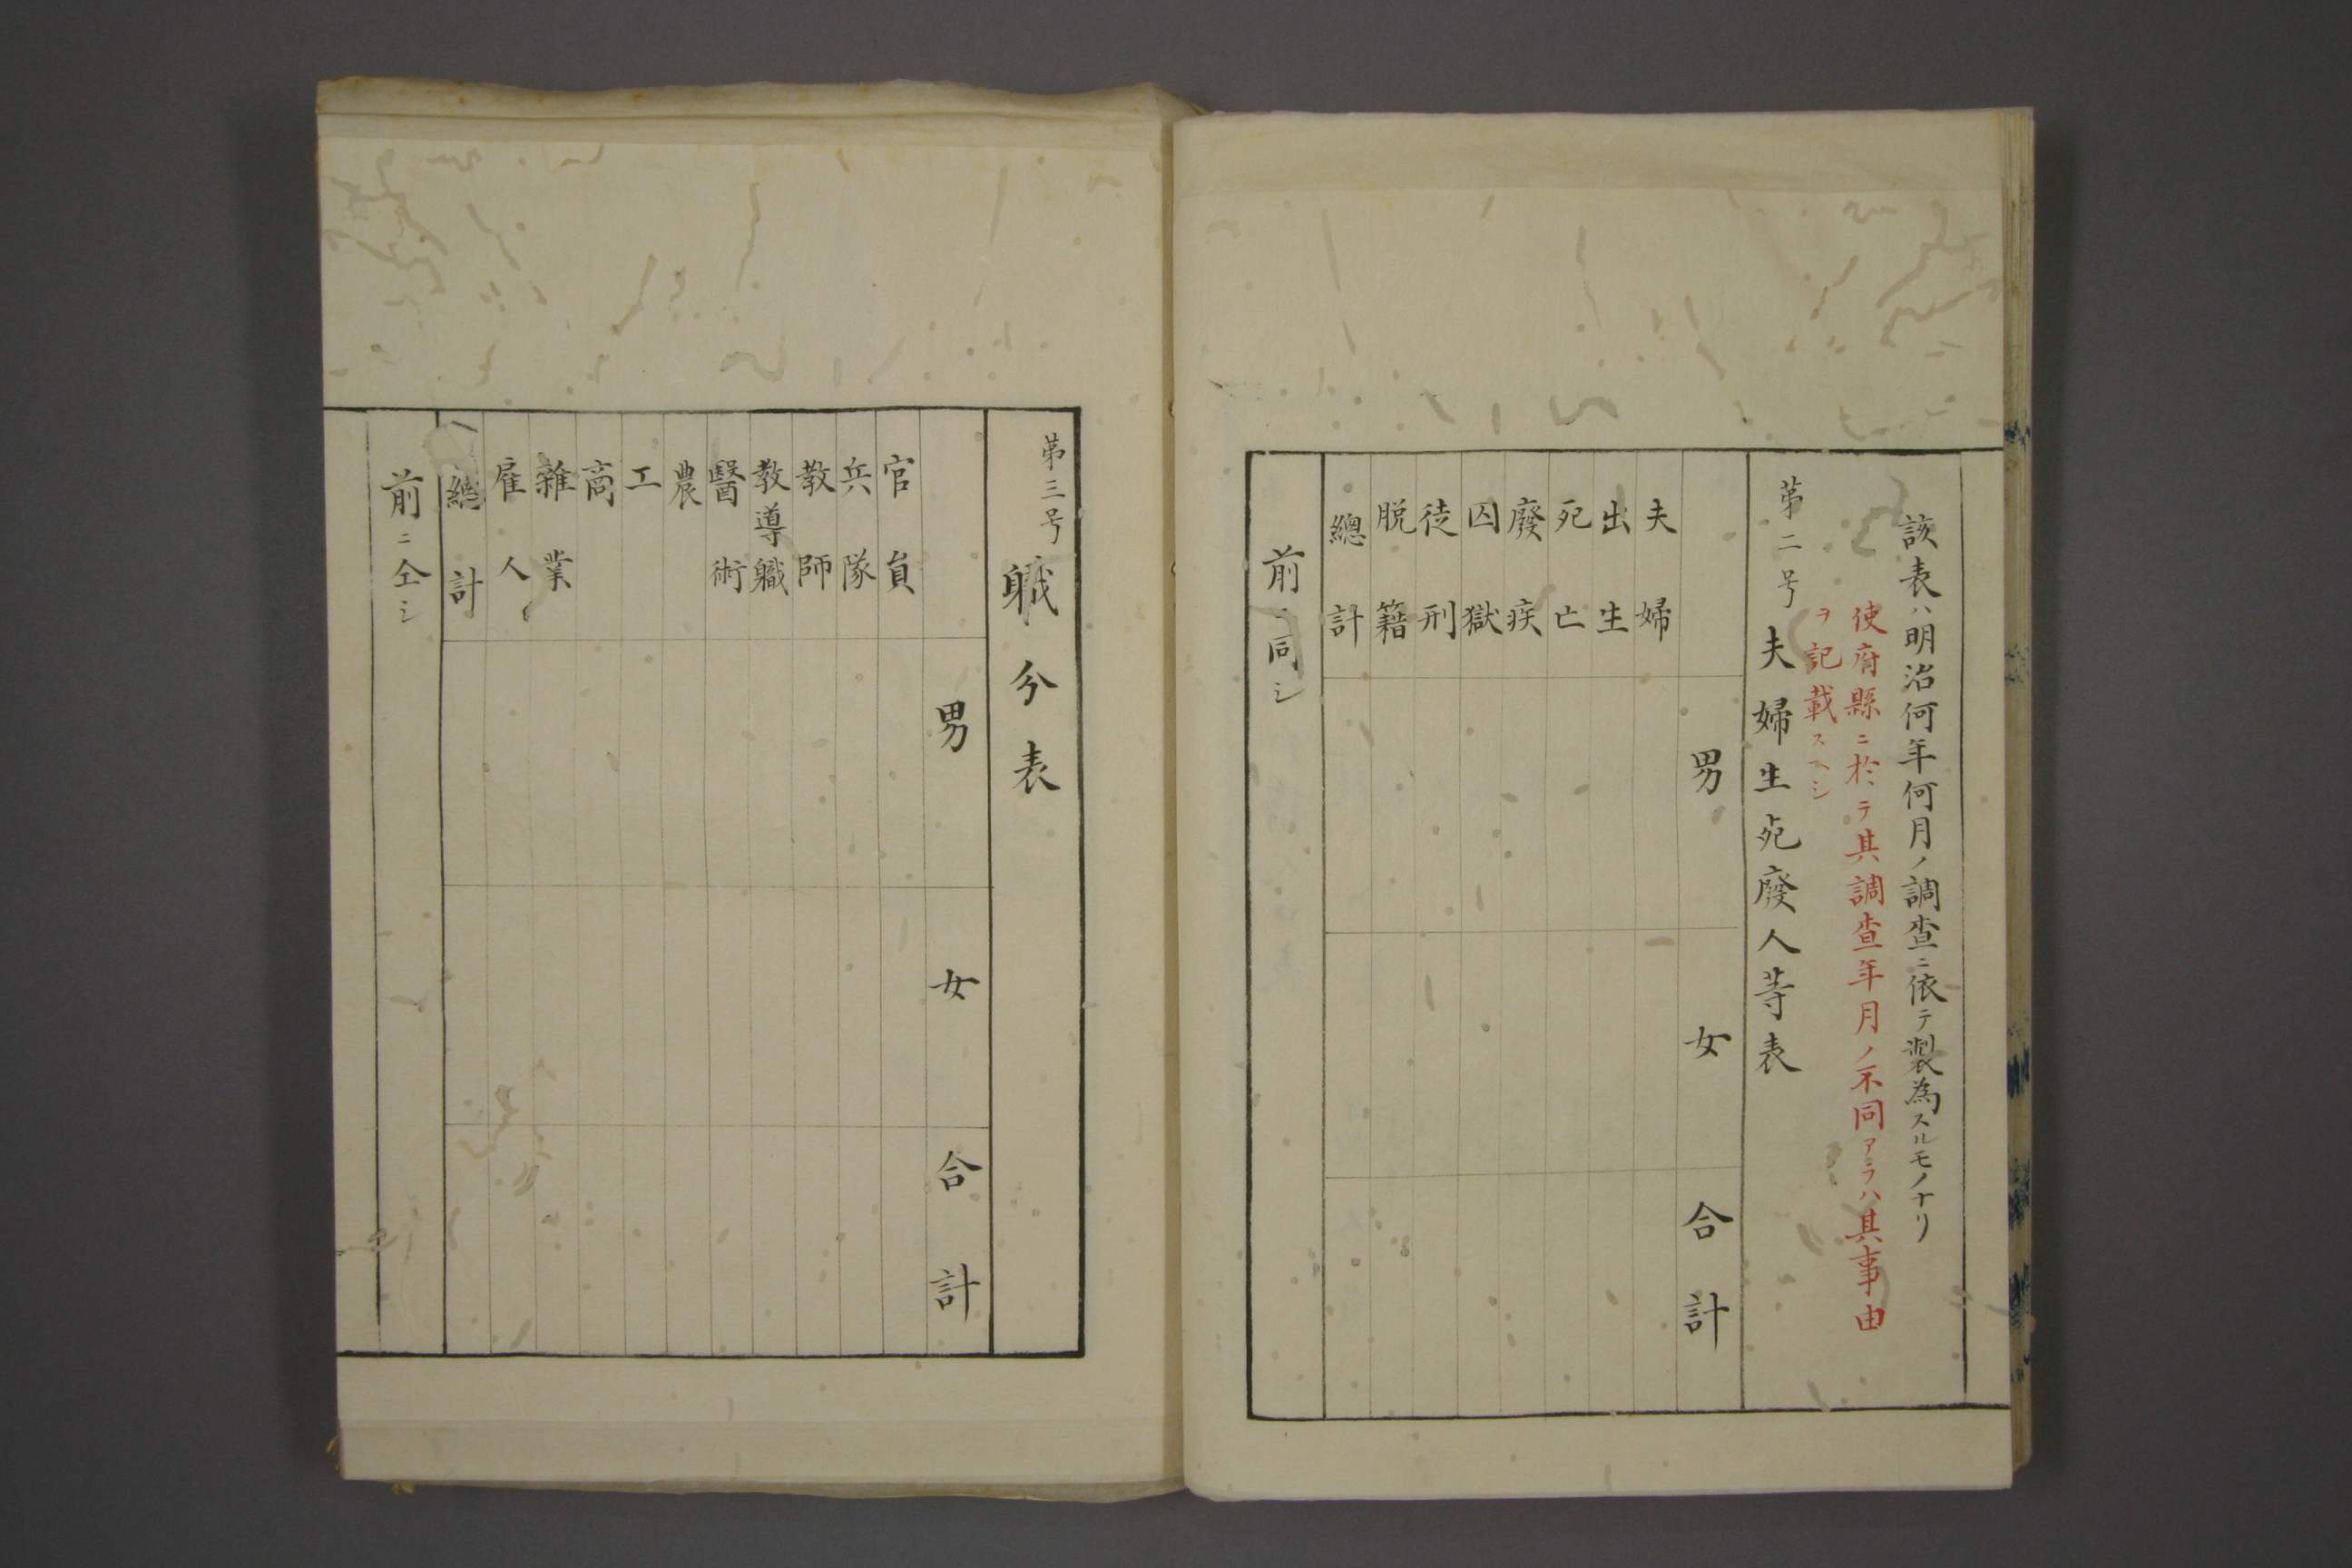 該表ハ明治何年何月ノ調査ニ依テ製為スルモノナリ
使府縣ニ於テ其調査年月ノ不同アラハ其事由
ヲ記載スヘシ
第二号 夫婦生死廢人等表
男 女 合計
夫婦
出生
死亡
廢疾
囚獄
徒刑
脱籍
總計
前ニ同シ
第三号 職分表
男 女 合計
官員
兵隊
教師
教導職
醫術
農
工
商
雜業
雇人
總計
前ニ仝シ